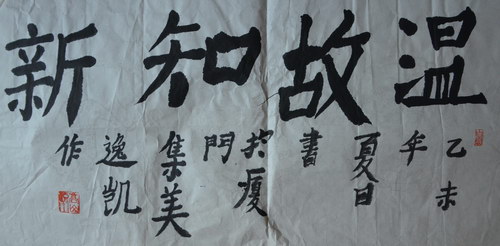 温故知新
乙未年夏日書於廈門集美逸凱作